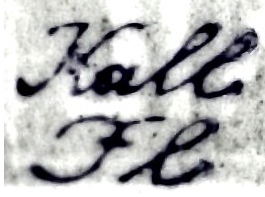 Hall
Fl